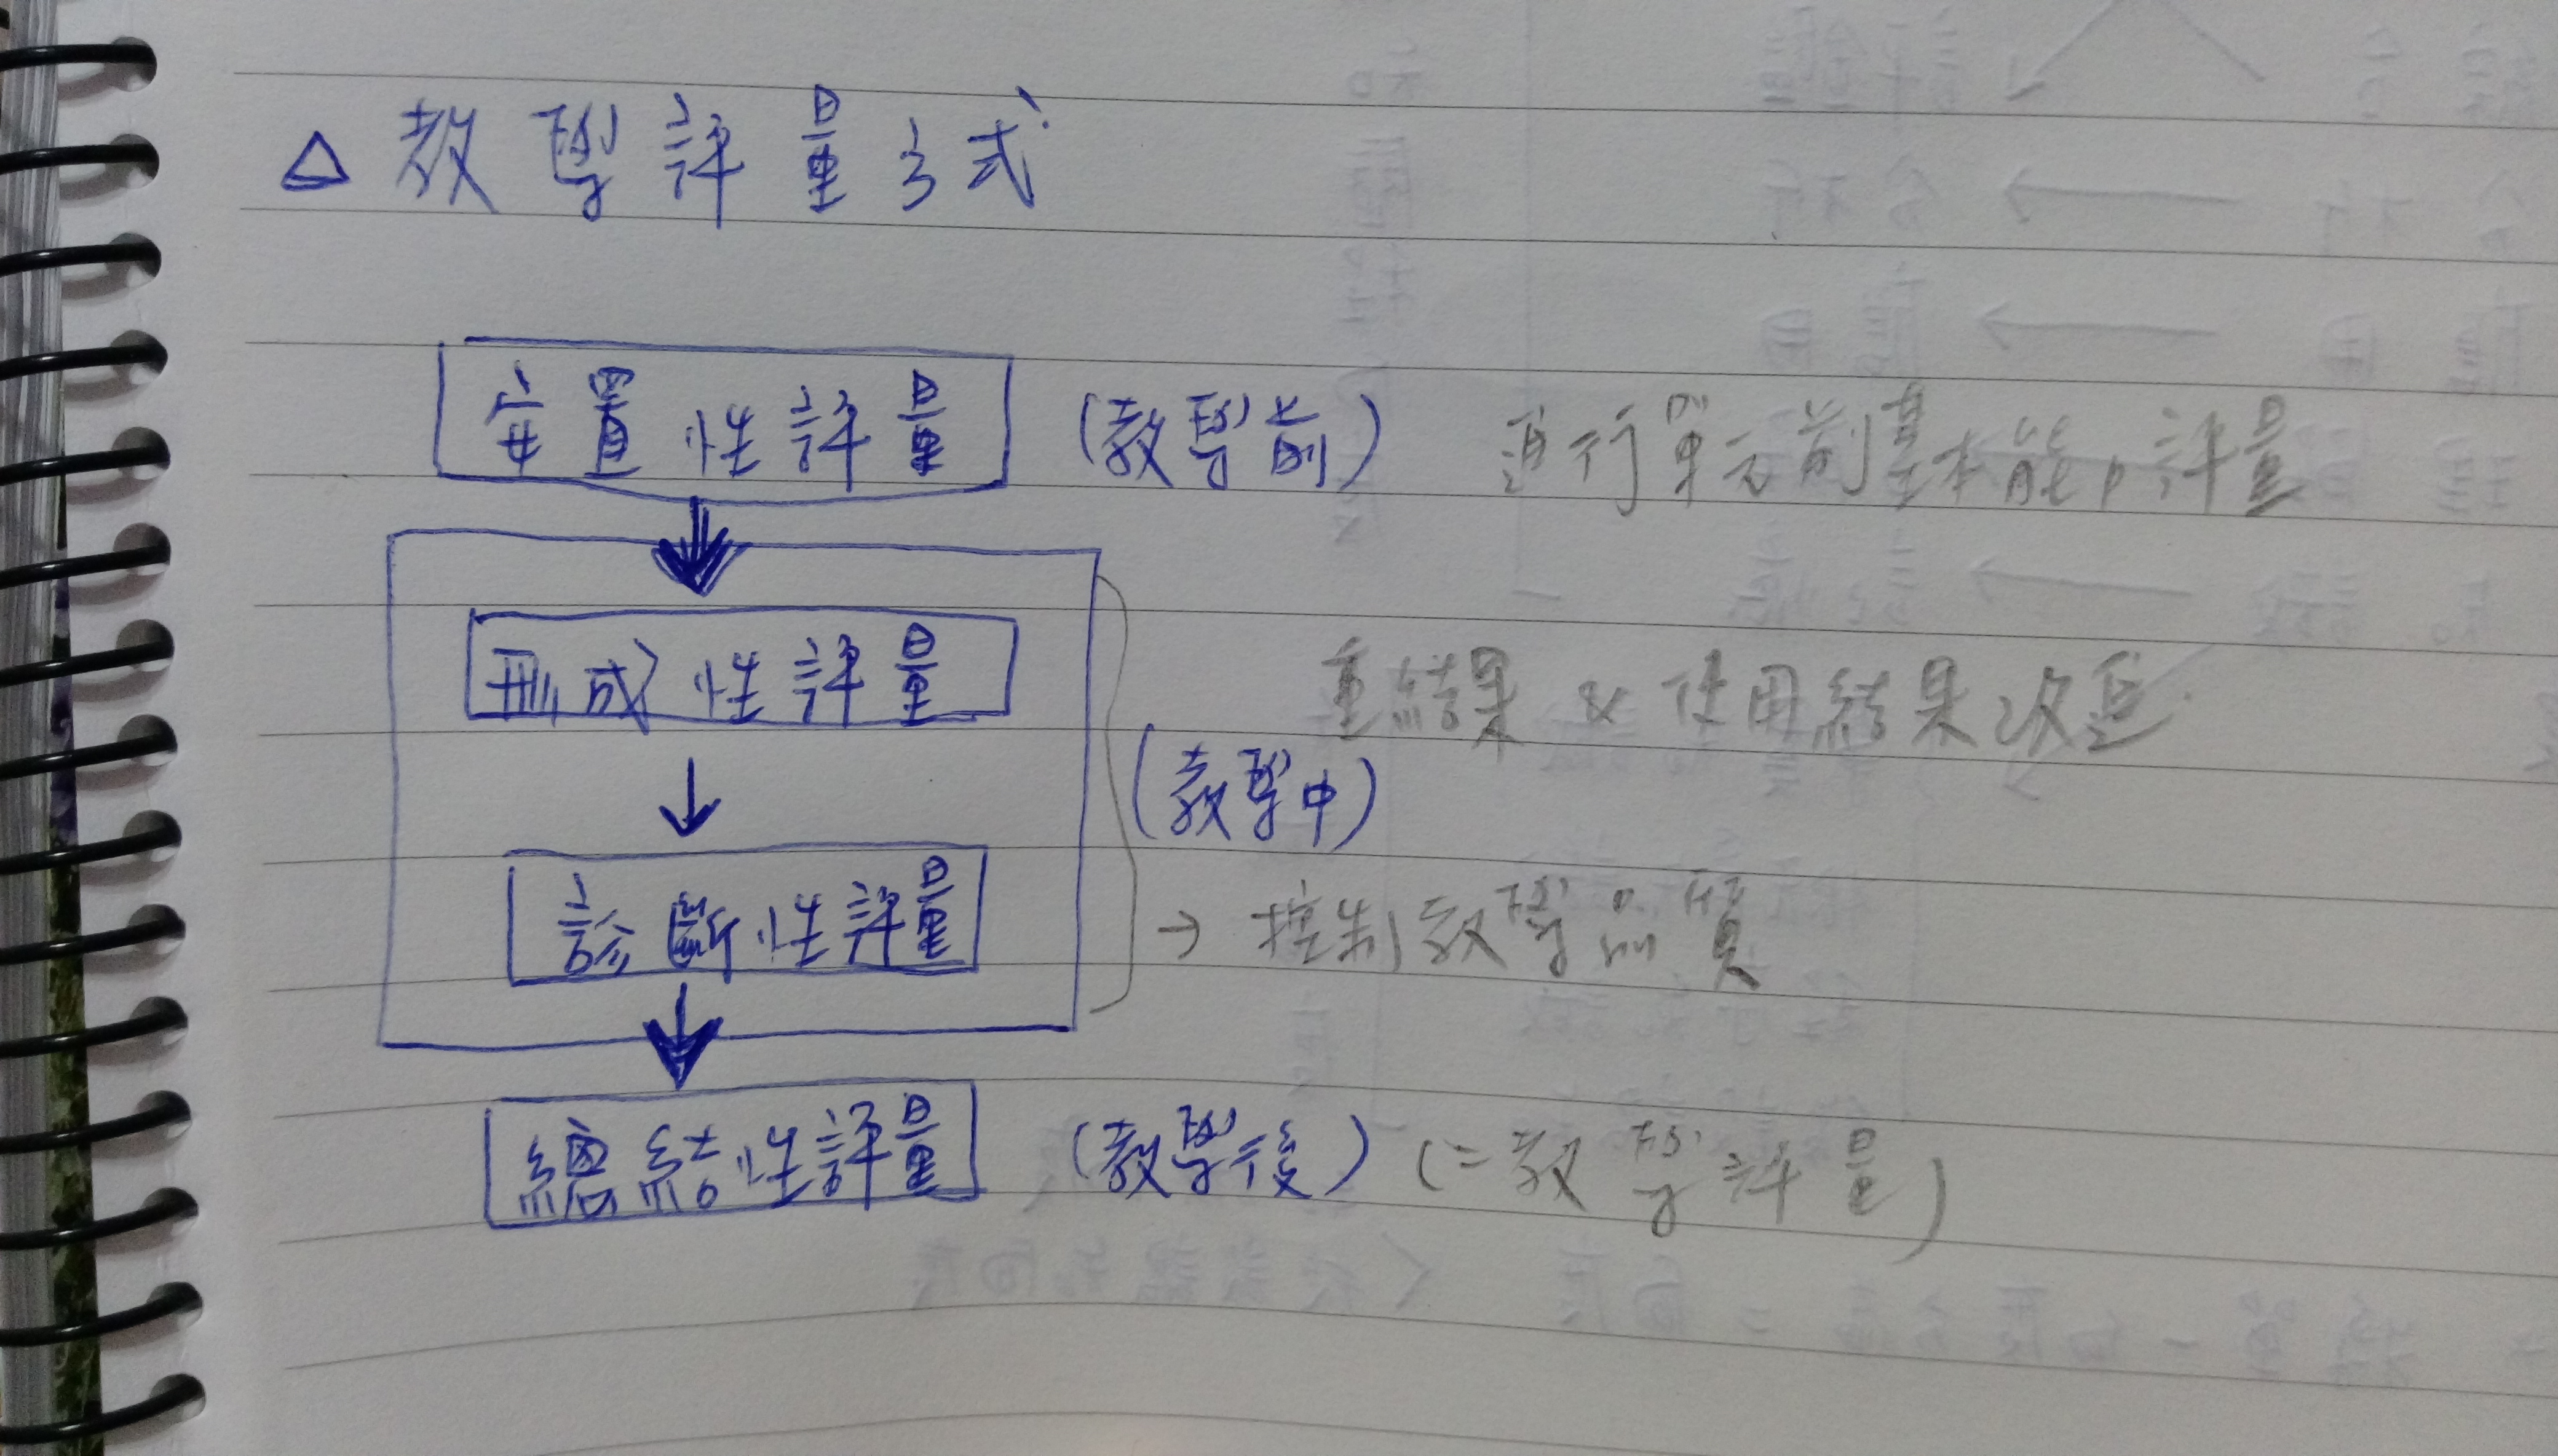 △ 教學評量方式
安置性評量 (教學前) 進行單元前基本能力評量
形成性評量 重結果 & 使用結果改進
(教學中)
診斷性評量 → 控制教學品質
總結性評量 (教學後) (=教學評量)